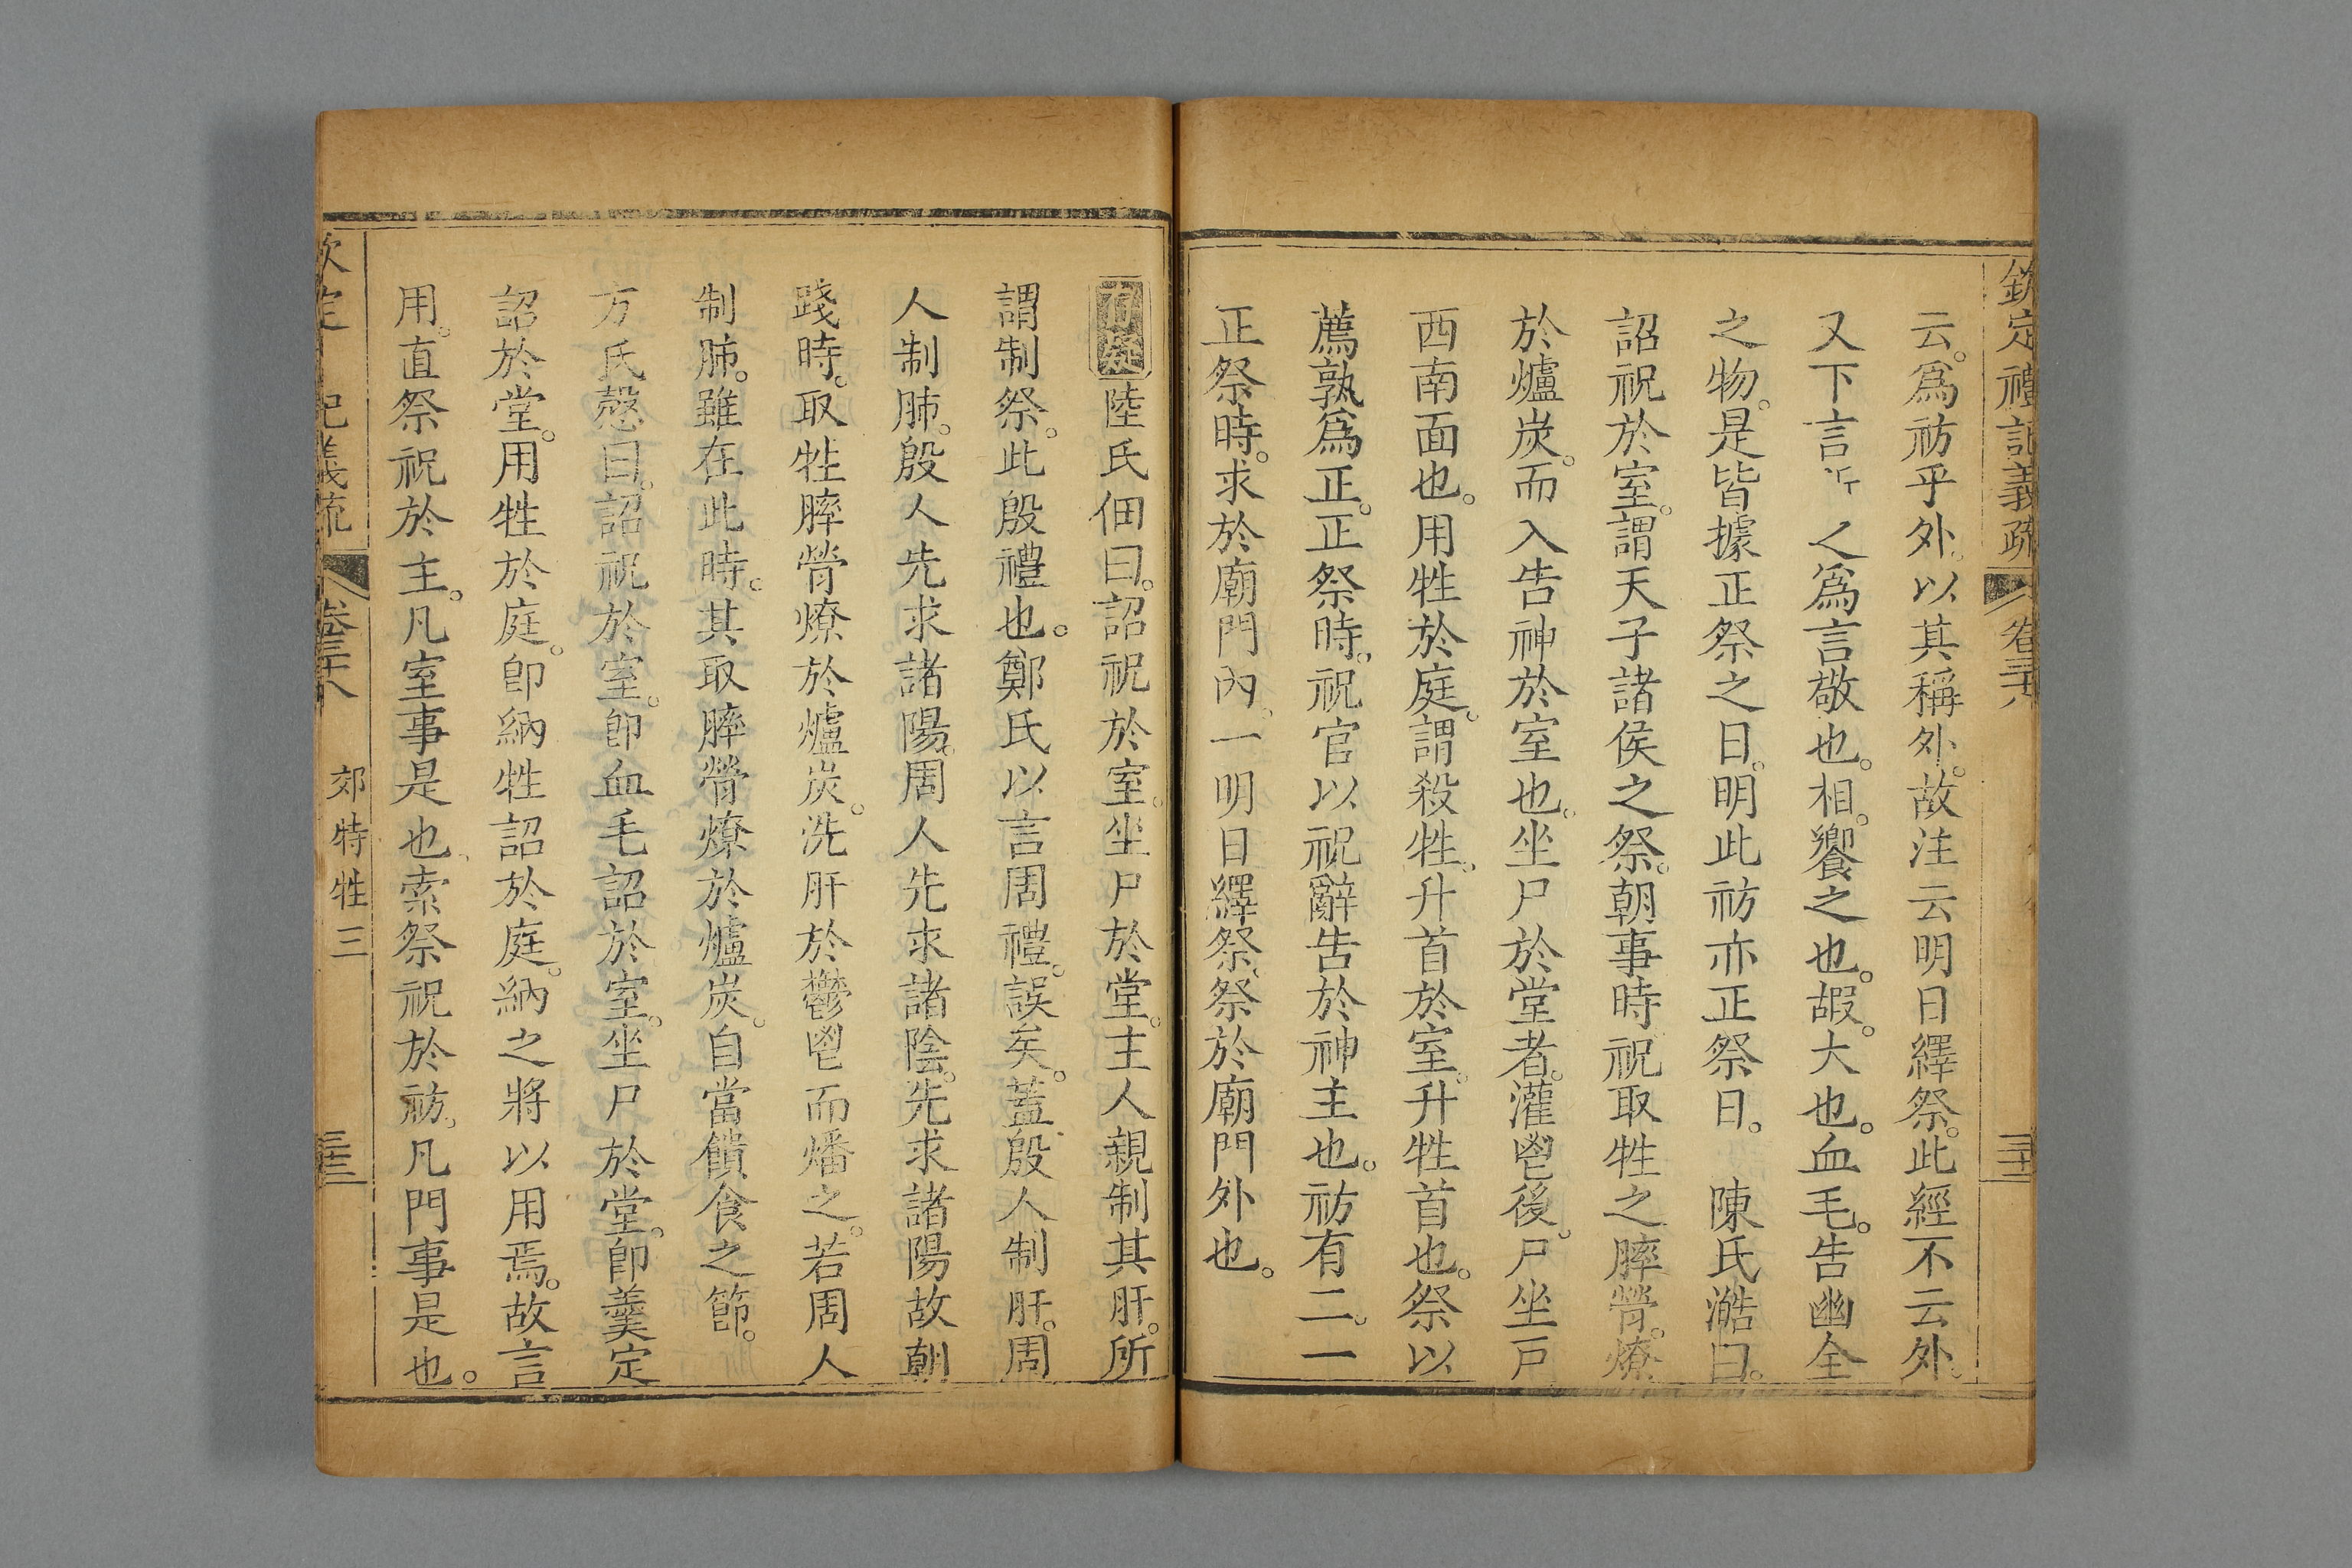 欽定禮記義疏 卷三十八 三十二
云。爲祊乎外。以其稱外。故注云明日繹祭。此經不云外。
又下言 之爲言敬也。相。饗之也。嘏。大也。血毛。告幽全
之物。是皆據正祭之日。明此祊亦正祭日。 陳氏澔曰。
詔祝於室。謂天子諸侯之祭。朝事時祝取牲之膟膋。燎
於爐炭。而入告神於室也。坐尸於堂者。灌鬯後。尸坐戸
西南面也。用牲於庭。謂殺牲。升首於室。升牲首也。祭以
薦孰爲正。正祭時。祝官以祝辭告於神主也。祊有二。一
正祭時。求於廟門內。一明日繹祭。祭於廟門外也。
存疑 陸氏佃曰。詔祝於室。坐尸於堂。主人親制其肝。所
謂制祭。此殷禮也。鄭氏以言周禮。誤矣。蓋殷人制肝。周
人制肺。殷人先求諸陽。周人先求諸陰。先求諸陽故朝
踐時。取牲膟膋燎於爐炭。洗肝於鬱鬯而燔之。若周人
制肺。雖在此時。其取膟膋燎於爐炭。自當饋食之節。
方氏慤曰。詔祝於室。卽血毛詔於室。坐尸於堂。卽羹定
詔於堂。用牲於庭。卽納牲詔於庭。納之將以用焉。故言
用。直祭祝於主。凡室事是也。索祭祝於祊。凡門事是也。
欽定 記義疏 卷三十八 郊特牲三 三十三